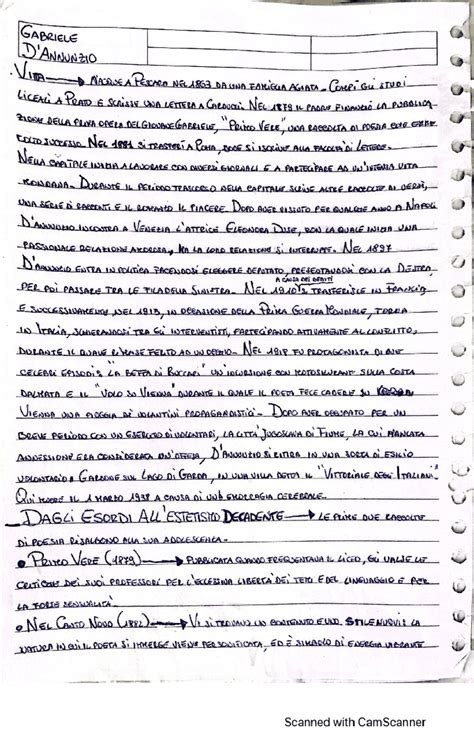 GABRIELE
D'ANNUNZIO
VITA → NACQUE A PESCARA NEL 1863 DA UNA FAMIGLIA AGIATA - COMPÌ GLI STUDI
LICEALI A PRATO E SCRISSE UNA LETTERA A CARDUCCI. NEL 1879 IL PADRE FINANZIÒ LA PUBBLICA-
ZIONE DELLA PRIMA OPERA DEL GIOVANE GABRIELE, "PRIMO VERE", UNA RACCOLTA DI POESIA CHE EBBE
MOLTO SUCCESSO. NEL 1881 SI TRASFERÌ A ROMA, DOVE SI ISCRIVE ALLA FACOLTÀ DI LETTERE.
NELLA CAPITALE INIZIA A LAVORARE CON DIVERSI GIORNALI E A PARTECIPARE AD UN'INTENSA VITA
MONDANA. DURANTE IL PERIODO TRASCORSO NELLA CAPITALE SCRISSE ALTRE RACCOLTE DI VERSI,
UNA SERIE DI RACCONTI E IL ROMANZO IL PIACERE. DOPO AVER VISSUTO PER QUALCHE ANNO A NAPOLI
D'ANNUNZIO INCONTRA A VENEZIA L'ATTRICE ELEONORA DUSE, CON LA QUALE INIZIA UNA
PASSIONALE RELAZIONE AMOROSA, MA LA LORO RELAZIONE SI INTERRUPPE. NEL 1897
D'ANNUNZIO ENTRA IN POLITICA FACENDOSI ELEGGERE DEPUTATO, PRESENTANDOSI CON LA DESTRA
A CAUSA DEI DEBITI
PER POI PASSARE TRA LE FILA DELLA SINISTRA. NEL 1910 SI TRASFERISCE IN FRANCIA
E SUCCESSIVAMENTE NEL 1915, IN OCCASIONE DELLA PRIMA GUERRA MONDIALE, TORNA
IN ITALIA, SCHIERANDOSI TRA GLI INTERVENTISTI, PARTECIPANDO ATTIVAMENTE AL CONFLITTO,
DURANTE IL QUALE RIMASE FERITO AD UN OCCHIO. NEL 1918 FU PROTAGONISTA DI DUE
CELEBRI EPISODI: "LA BEFFA DI BUCCARI" UN'INCURSIONE CON MOTOSILURANTI SULLA COSTA
DALMATA E IL "VOLO SU VIENNA" DURANTE IL QUALE IL POETA FECE CADERE SU
VIENNA UNA PIOGGIA DI VOLANTINI PROPAGANDISTICI - DOPO AVER OCCUPATO PER UN
BREVE PERIODO CON UN ESERCITO DI VOLONTARI, LA CITTÀ JUGOSLAVA DI FIUME, LA CUI MANCATA
ANNESSIONE ERA CONSIDERATA UN'OFFESA, D'ANNUNZIO SI RITIRA IN UNA SORTA DI ESILIO
VOLONTARIO A GARDONE SUL LAGO DI GARDA, IN UNA VILLA DETTA IL "VITTORIALE DEGLI ITALIANI".
QUI MUORE IL 1 MARZO 1938 A CAUSA DI UNA EMORRAGIA CEREBRALE.
DAGLI ESORDI ALL'ESTETISMO DECADENTE → LE PRIME DUE RACCOLTE
DI POESIA RISALGONO ALLA SUA ADOLESCENZA.
• PRIMO VERE (1879) → PUBBLICATA QUANDO FREQUENTAVA IL LICEO, GLI VALSE LE
CRITICHE DEI SUOI PROFESSORI PER L'ECCESSIVA LIBERTÀ DEI TEMI E DEL LINGUAGGIO E PER
LA FORTE SENSUALITÀ.
• NEL CANTO NOVO (1882) → VI SI TROVANO UN CONTENUTO E UNO STILE NUOVI. LA
NATURA IN CUI IL POETA SI IMMERGE VIENE PERSONIFICATA, ED È SIMBOLO DI ENERGIA VIBRANTE
Scanned with CamScanner